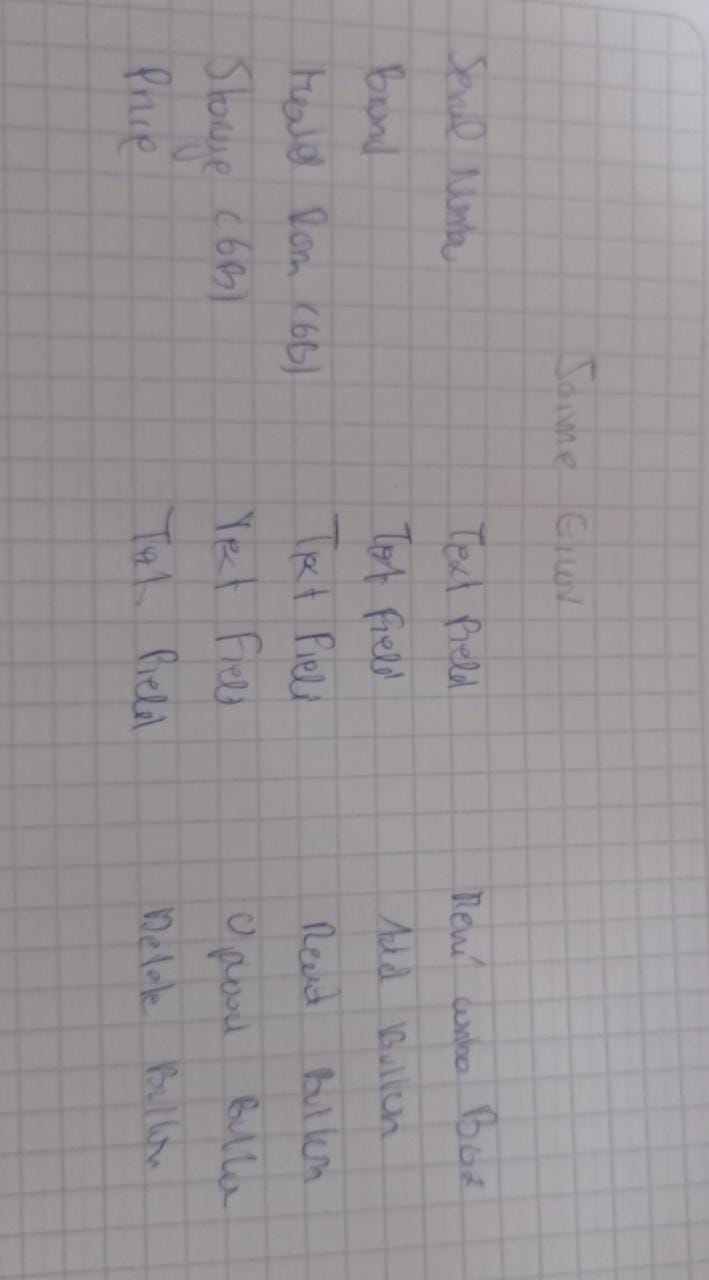 Jaime
Serial Numbe Text Field Menu combo Box
Brand Text Field Add Button
Ram (GB) Text Field Read Button
Storage (GB) Text Field Button
Price Text Field Delete Button